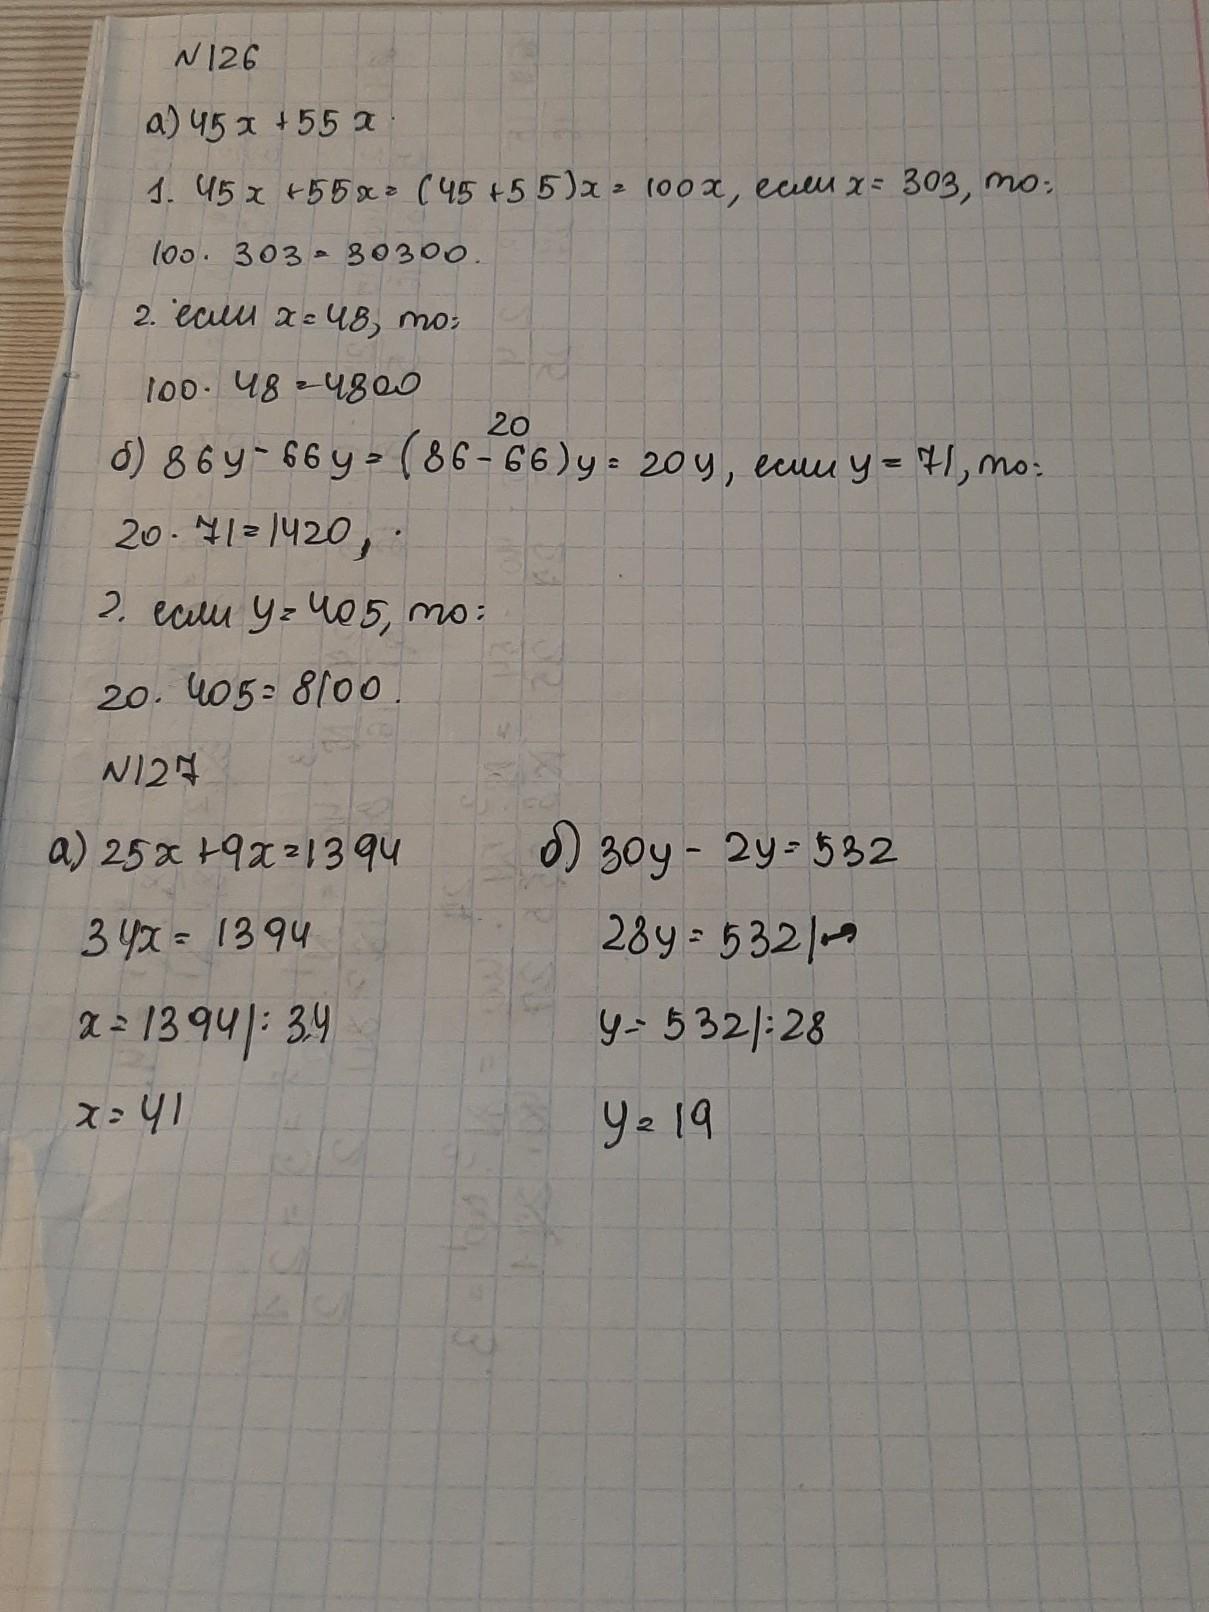 N126
а) 45x + 55x
1. 45x + 55x = (45 + 55)x = 100x, если x = 303, то:
100 · 303 = 30300.
2. если x = 48, то:
100 · 48 = 4800
20
б) 86y - 66y = (86 - 66)y = 20y, если y = 71, то:
20 · 71 = 1420,
2. если y = 405, то:
20 · 405 = 8100.
N127
а) 25x + 9x = 1394
34x = 1394
x = 1394 |: 34
x = 41
б) 30y - 2y = 532
28y = 532 |
y = 532 |: 28
y = 19